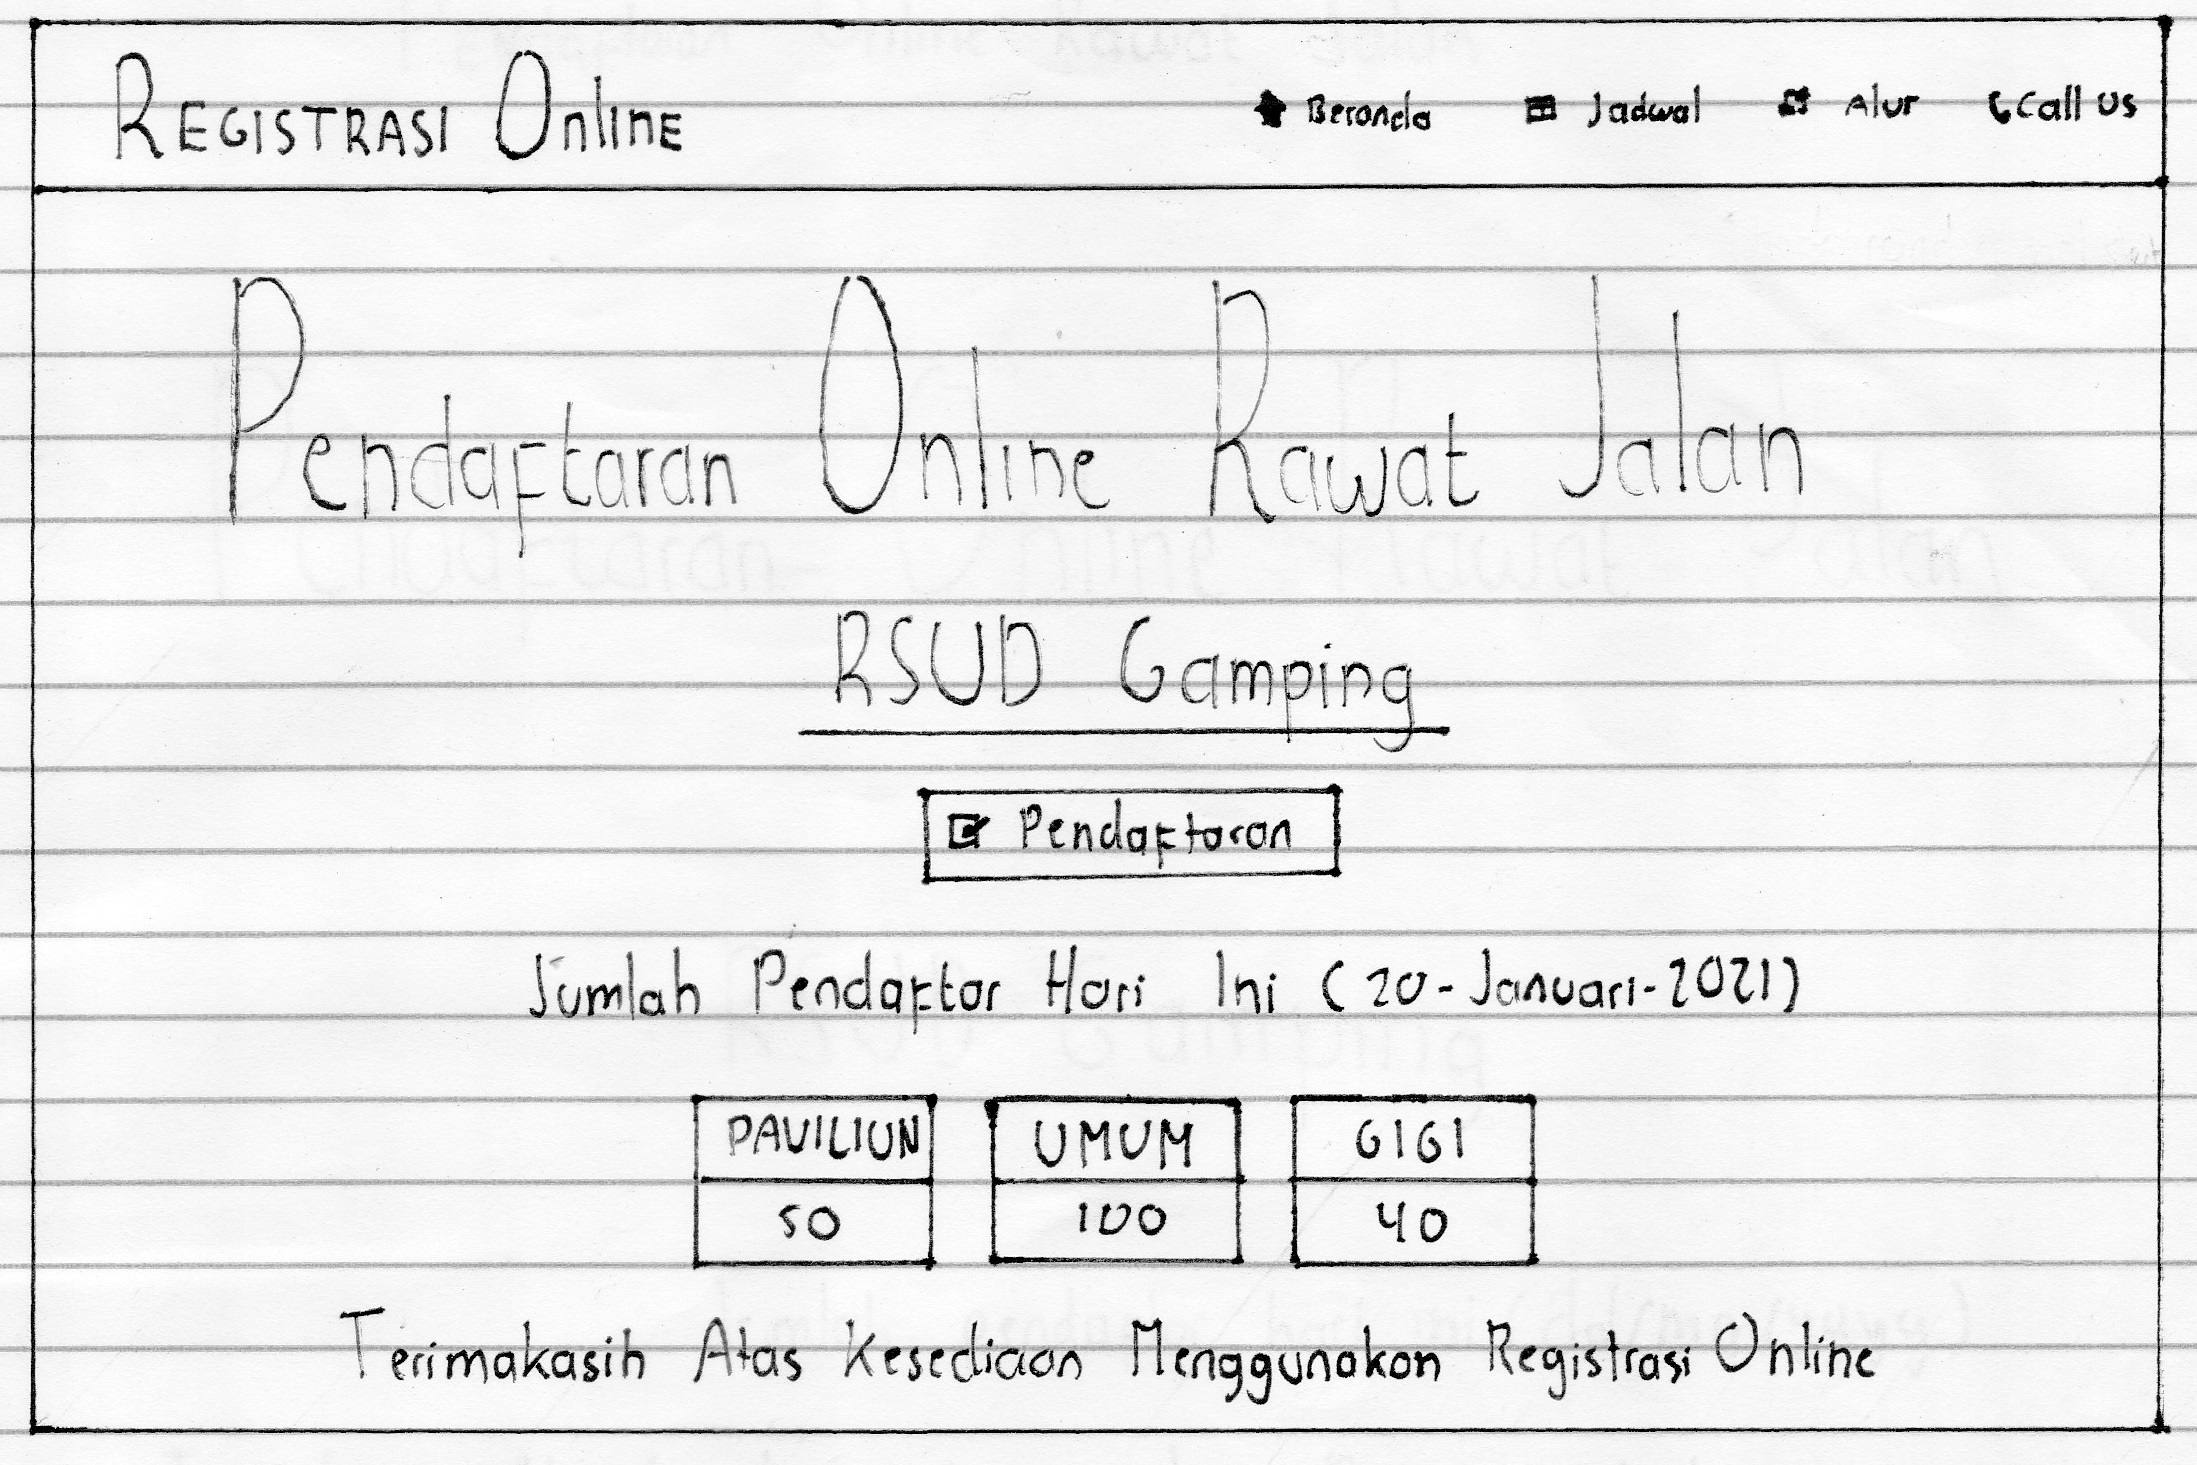 REGISTRASI Online
Beranda Jadwal Alur Call Us
Pendaftaran Online Rawat Jalan
RSUD Gamping
Pendaftaran
Jumlah Pendaftar Hari Ini (20-Januari-2021)
PAVILIUN UMUM GIGI
50 100 40
Terimakasih Atas Kesediaan Menggunakan Registrasi Online